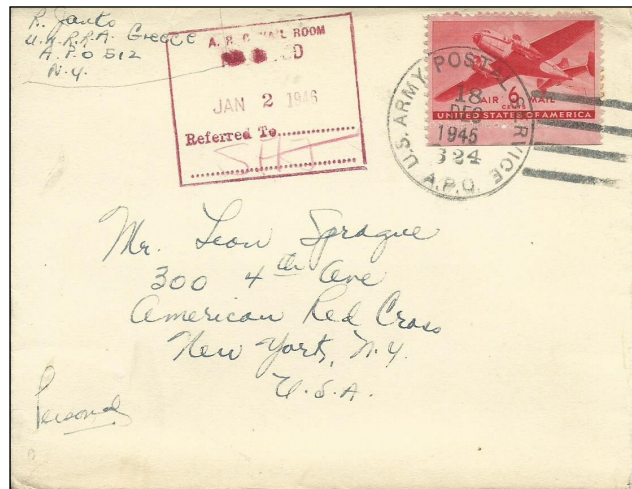 U.N.R.R.A. Greece
A.P.O 512
N.Y.
A. R. C. MAIL ROOM
JAN 2 1946
Referred To
U.S. ARMY POSTAL SERVICE
A.P.O.
18
DEC
1945
324
AIR 6 MAIL
CENTS
UNITED STATES OF AMERICA
Mr. Leon Sprague
300 4th Ave
American Red Cross
New York, N.Y.
U.S.A.
Personal